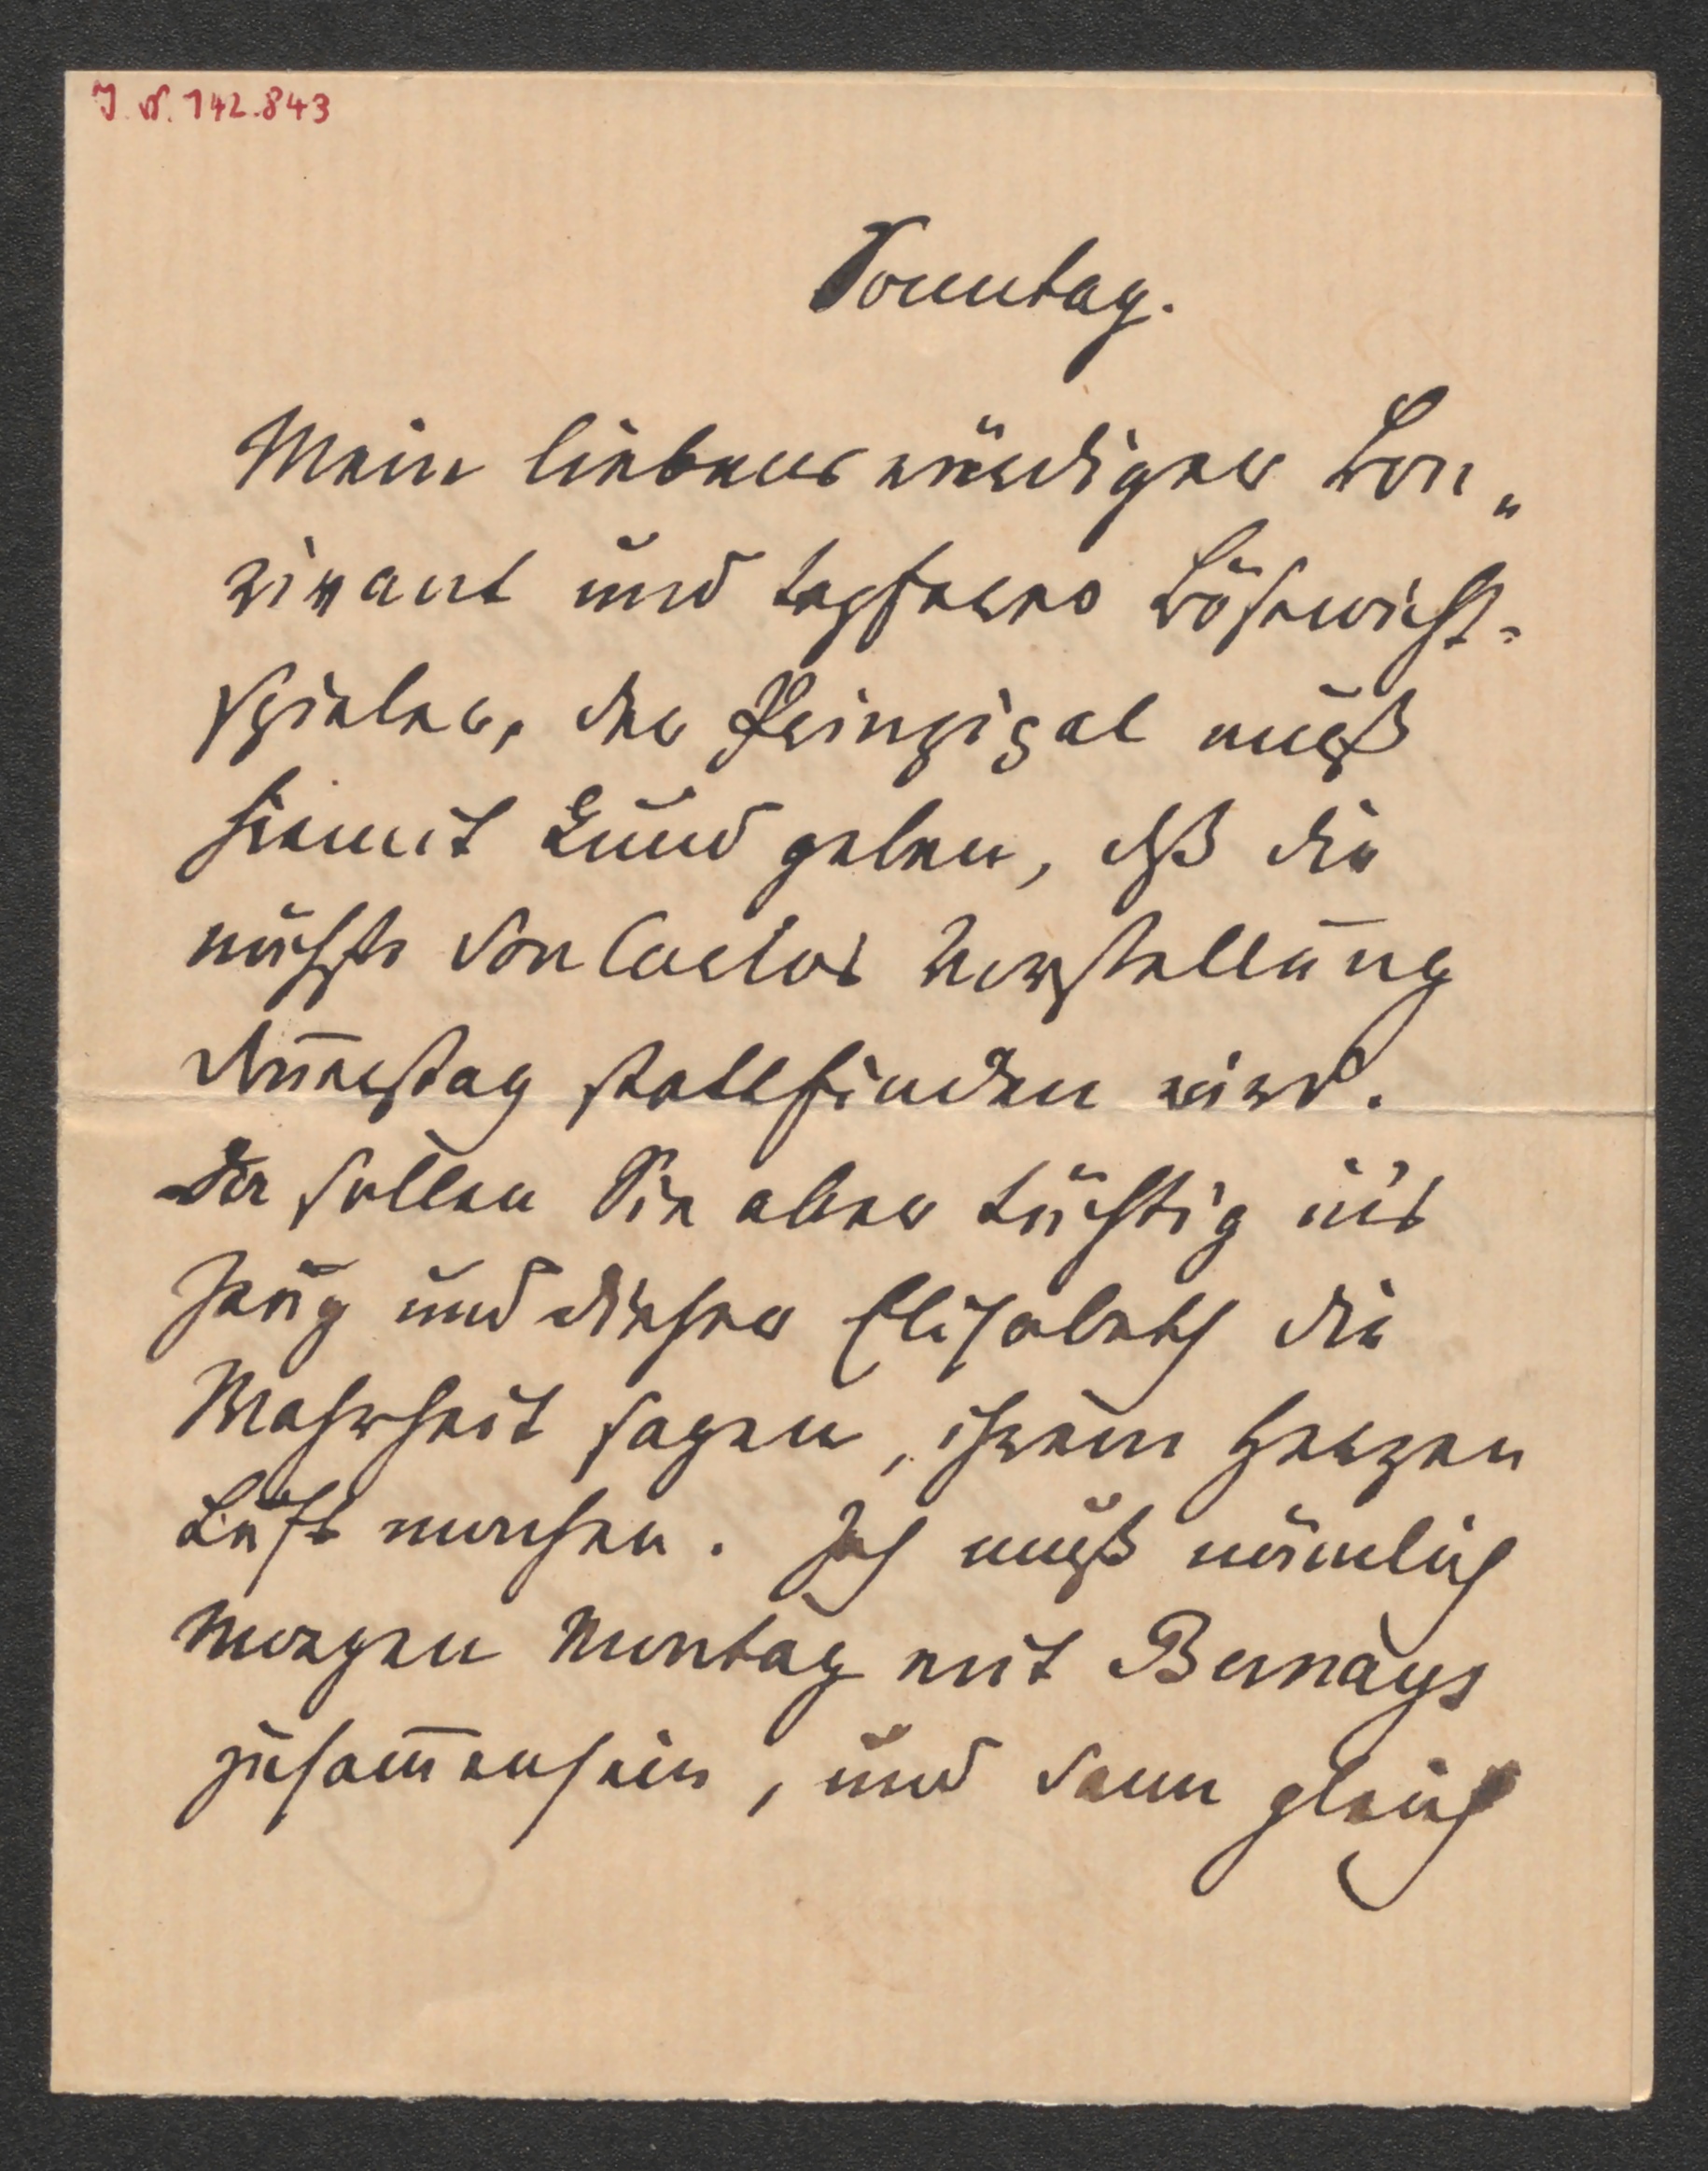 J. N. 142.843
Sonntag.
Mein liebenswürdiger Bon„
vivant und tapferer Bösewicht-
spieler, der Prinzipal muß
hiemit kund geben, dß die
nächste Don Carlos Vorstellung
Dienstag stattfinden wird.
Da sollen Sie aber tüchtig in's
Zeug und dieser Elisabeth die
Wahrheit sagen, ihrem Herzen
Luft machen. Ich muß nämlich
Morgen Montag mit Bernays
zusam̄ensein, und dann gleich